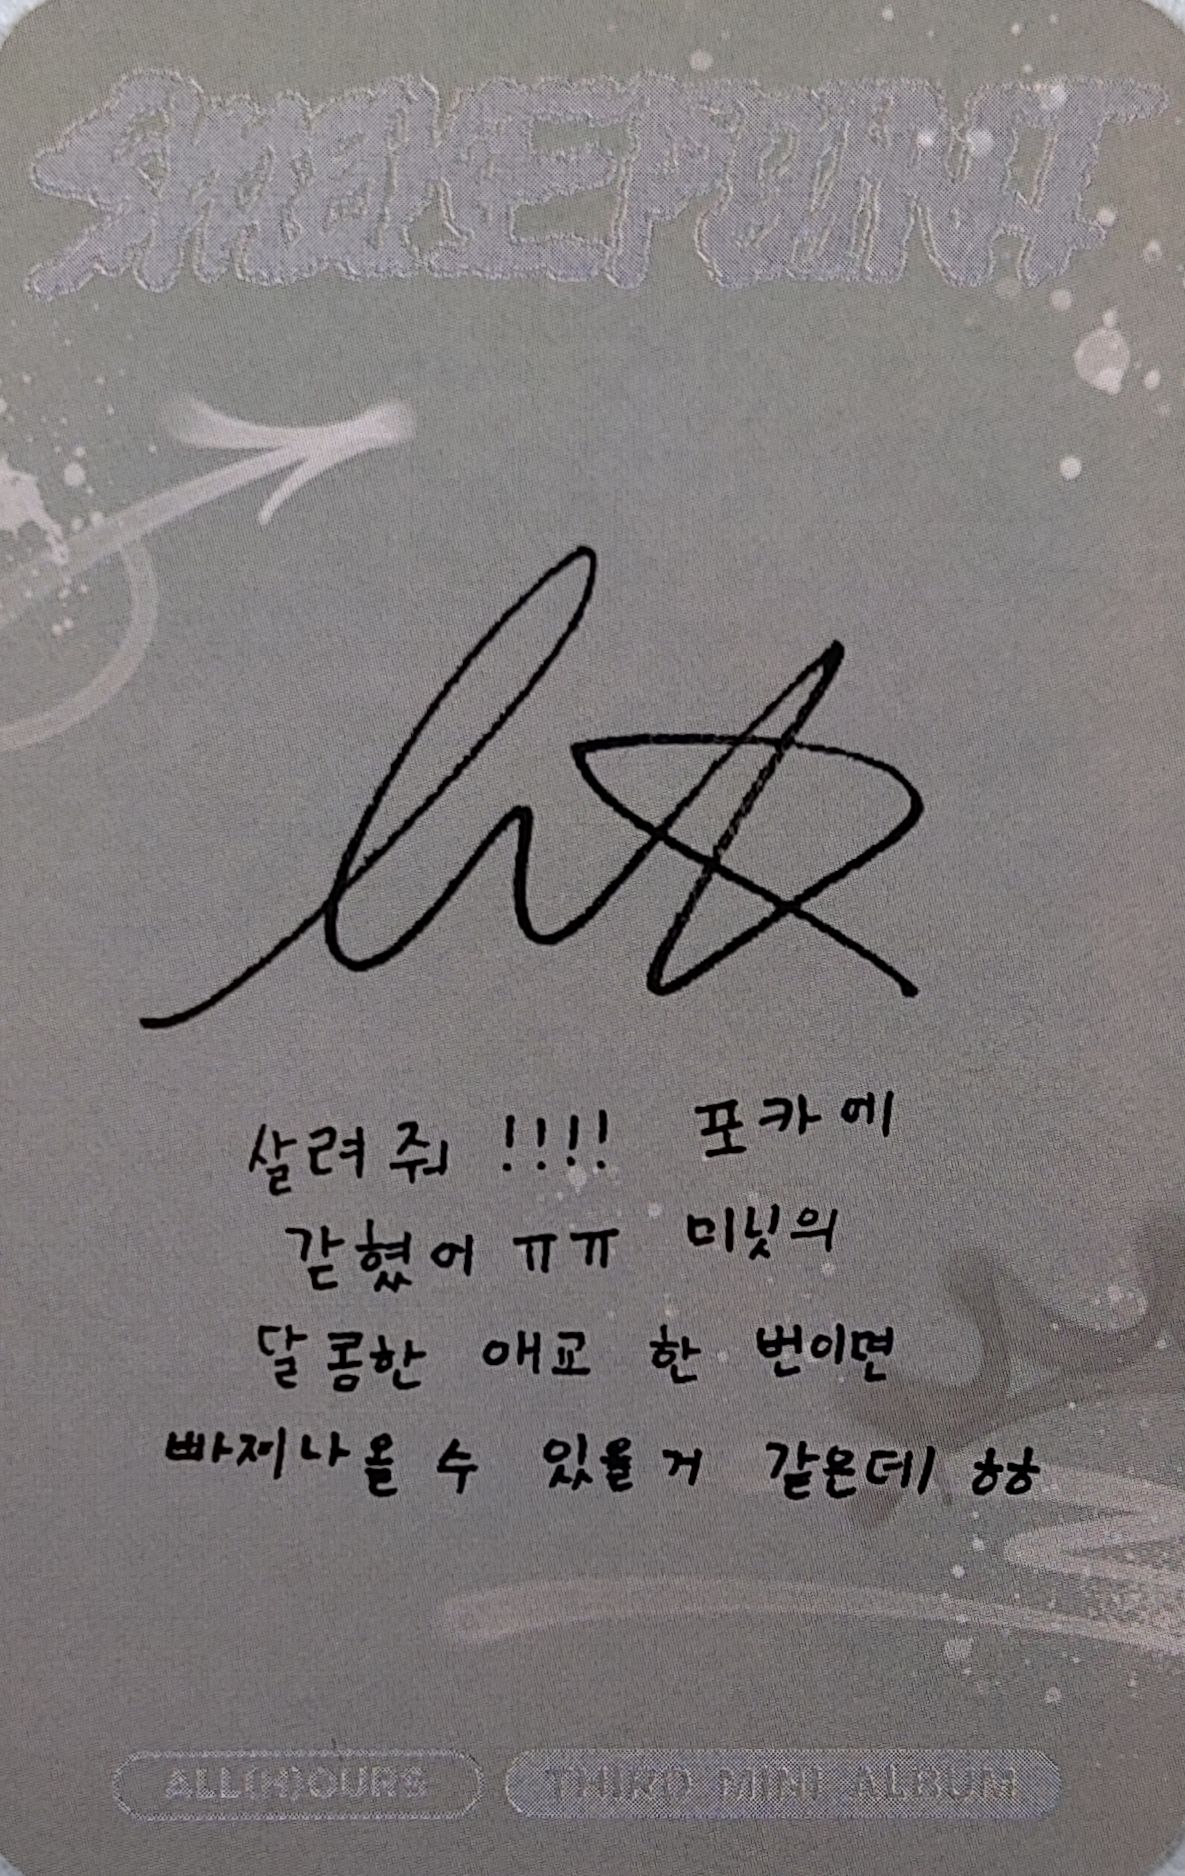 SMOKE POINT
살려줘 !!!! 포카에
갇혔어 ㅠㅠ 미닛의
달콤한 애교 한 번이면
빠져나올 수 있을 거 같은데 ㅎㅎ
ALL(H)OURS THIRD MINI ALBUM